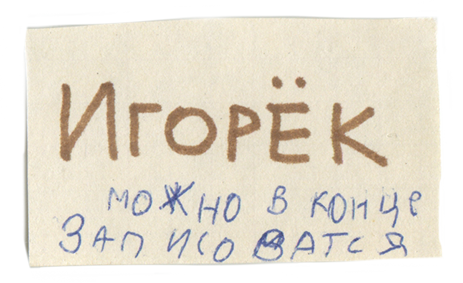 ИГОРЁК
МОЖНО В КОНЦЕ
ЗАПИСОВАТСЯ